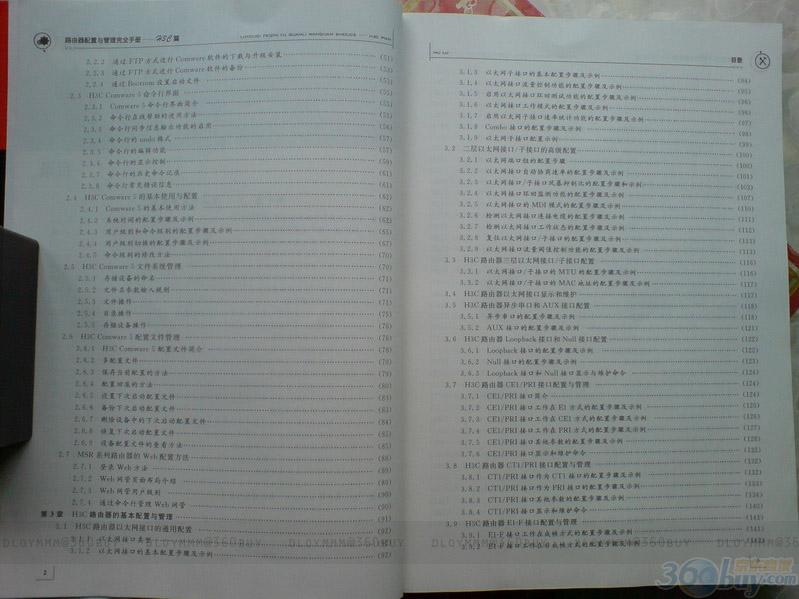 路由器配置与管理完全手册——H3C篇
2.2.2 通过 FTP 方式进行 Comware 软件的下载与升级安装 (51)
2.2.3 通过 FTP 方式进行 Comware 软件的备份 (53)
2.2.4 通过 Bootrom 设置启动文件 (55)
2.3 H3C Comware 5 命令行界面
2.3.1 Comware 5 命令行界面简介
2.3.2 命令行在线帮助的使用方法
2.3.3 命令行同步信息输出功能的启用
2.3.4 命令行的 undo 格式 (57)
2.3.5 命令行的编辑功能 (57)
2.3.6 命令行的显示控制
2.3.7 命令行的历史命令记录
2.3.8 命令行常见错误信息 (61)
2.4 H3C Comware 5 的基本使用与配置 (62)
2.4.1 Comware 5 的基本使用方法 (62)
2.4.2 系统时间的配置步骤及示例
2.4.3 用户级别和命令级别的配置步骤及示例
2.4.4 用户级别切换的配置步骤及示例 (67)
2.4.5 命令级别的修改方法 (70)
2.5 H3C Comware 5 文件系统管理 (71)
2.5.1 存储设备的命名 (71)
2.5.2 文件名参数输入规则 (71)
2.5.3 文件操作
2.5.4 目录操作
2.5.5 存储设备操作
2.6 H3C Comware 5 配置文件管理 (78)
2.6.1 H3C Comware 5 配置文件简介 (78)
2.6.2 多配置文件 (79)
2.6.3 保存当前配置的方法
2.6.4 配置回滚的方法
2.6.5 设置下次启动配置文件
2.6.6 备份下次启动配置文件
2.6.7 删除设备中的下次启动配置文件
2.6.8 恢复下次启动配置文件 (85)
2.6.9 设备配置文件的查看方法 (85)
2.7 MSR 系列路由器的 Web 配置方法
2.7.1 登录 Web 方法
2.7.2 Web 网管页面布局介绍 (88)
2.7.3 Web 网管用户级别
2.7.4 通过命令行管理 Web 网管
第3章 H3C 路由器的基本配置与管理
3.1 H3C 路由器以太网接口的通用配置 (91)
3.1.1 以太网接口类型 (91)
3.1.2 以太网接口的基本配置步骤及示例 (92)
2
目录
3.1.3 以太网子接口的基本配置步骤及示例 (94)
3.1.4 以太网接口流量控制功能的配置步骤及示例 (95)
3.1.5 启用以太网接口环回测试功能的配置步骤及示例
3.1.6 以太网接口工作模式的配置步骤及示例 (97)
3.1.7 启用以太网子接口速率统计功能的配置步骤及示例
3.1.8 Combo 接口的配置步骤及示例 (98)
3.1.9 以太网子接口配置示例 (99)
3.2 二层以太网接口/子接口的高级配置 (100)
3.2.1 以太网端口组的配置步骤 (100)
3.2.2 以太网接口自动协商速率的配置步骤及示例 (101)
3.2.3 以太网接口/子接口风暴抑制比的配置步骤和示例 (103)
3.2.4 以太网接口环回监测功能的配置步骤及示例 (107)
3.2.5 以太网接口的 MDI 模式的配置步骤及示例 (110)
3.2.6 检测以太网接口连接电缆的配置步骤及示例 (111)
3.2.7 检测以太网接口工作状态的配置步骤及示例 (112)
3.2.8 复位以太网接口/子接口的配置步骤及示例 (113)
3.2.9 以太网接口流量阈值控制功能的配置步骤及示例 (113)
3.3 H3C 路由器三层以太网接口/子接口配置 (116)
3.3.1 以太网接口/子接口的 MTU 的配置步骤及示例 (116)
3.3.2 以太网接口/子接口的 MAC 地址的配置步骤及示例 (116)
3.4 H3C 路由器以太网接口显示和维护 (117)
3.5 H3C 路由器异步串口和 AUX 接口配置 (118)
3.5.1 异步串口的配置步骤及示例 (119)
3.5.2 AUX 接口的配置步骤及示例 (121)
3.6 H3C 路由器 Loopback 接口和 Null 接口配置 (122)
3.6.1 Loopback 接口的配置步骤及示例 (122)
3.6.2 Null 接口的配置步骤及示例 (123)
3.6.3 Loopback 接口和 Null 接口显示与维护命令 (124)
3.7 H3C 路由器 CE1/PRI 接口配置与管理 (124)
3.7.1 CE1/PRI 接口简介 (124)
3.7.2 CE1/PRI 接口工作在 E1 方式的配置步骤及示例
3.7.3 CE1/PRI 接口工作在 CE1 方式的配置步骤及示例
3.7.4 CE1/PRI 接口工作在 PRI 方式的配置步骤及示例
3.7.5 CE1/PRI 接口其他参数的配置步骤及示例
3.7.6 CE1/PRI 接口显示和维护命令
3.8 H3C 路由器 CT1/PRI 接口配置与管理 (132)
3.8.1 CT1/PRI 接口工作为 CT1 接口的配置步骤及示例
3.8.2 CT1/PRI 接口作为 PRI 接口的配置步骤及示例
3.8.3 CT1/PRI 接口其他参数的配置步骤及示例
3.8.4 CT1/PRI 接口显示和维护命令
3.9 H3C 路由器 E1-F 接口配置与管理 (141)
3.9.1 E1-F 接口工作在成帧方式的配置步骤及示例
3.9.2 E1-F 接口工作在非成帧方式的配置步骤及示例
DLQYMMM@360BUY
京东商城
360buy.com